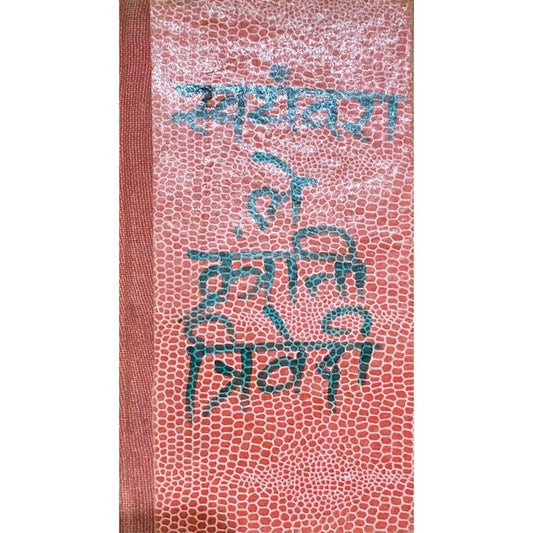 स्वयंवरा
ले
क्रांति
त्रिवेदी